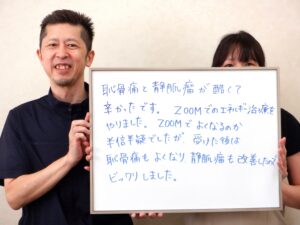 恥骨痛と静脈瘤が酷くて
辛かったです。ZOOMでのエネルギー治療を
やりました。ZOOMでよくなるのか
半信半疑でしたが、受けた後は
恥骨痛もよくなり静脈瘤も改善したので
ビックリしました。